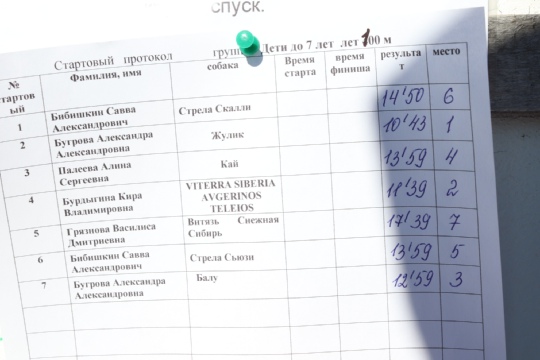 спуск.
Стартовый протокол группа Дети до 7 лет лет 100 м
№ стартовый Фамилия, имя собака Время старта время финиша результат место
1 Бибишкин Савва Александрович Стрела Скалли 14'50 6
2 Бугрова Александра Александровна Жулик 10'43 1
3 Палеева Алина Сергеевна Кай 13'59 4
4 Бурдыгина Кира Владимировна VITERRA SIBERIA AVGERINOS TELEIOS 11'39 2
5 Грязнова Василиса Дмитриевна Витязь Снежная Сибирь 17'39 7
6 Бибишкин Савва Александрович Стрела Сьюзи 13'59 5
7 Бугрова Александра Александровна Балу 12'59 3